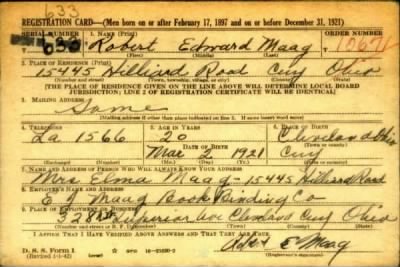 633
REGISTRATION CARD—(Men born on or after February 17, 1897 and on or before December 31, 1921)
SERIAL NUMBER 1. NAME (Print) ORDER NUMBER
633 Robert Edward Maag 10671
(First) (Middle) (Last)
2. PLACE OF RESIDENCE (Print)
15445 Hilliard Road Cuy Ohio
(Number and street) (Town, township, village, or city) (County) (State)
[THE PLACE OF RESIDENCE GIVEN ON THE LINE ABOVE WILL DETERMINE LOCAL BOARD
JURISDICTION; LINE 2 OF REGISTRATION CERTIFICATE WILL BE IDENTICAL]
3. MAILING ADDRESS
Same
[Mailing address if other than place indicated on line 2. If same insert word same]
4. TELEPHONE 5. AGE IN YEARS 6. PLACE OF BIRTH
La 1566 20 Cleveland Ohio
DATE OF BIRTH
Mar 2 1921 Cuy
(Exchange) (Number) (Mo.) (Day) (Yr.) (State or country)
7. NAME AND ADDRESS OF PERSON WHO WILL ALWAYS KNOW YOUR ADDRESS
Mrs Elma Maag - 15445 Hilliard Road
8. EMPLOYER'S NAME AND ADDRESS
E J Maag Book Binding Co
9. PLACE OF EMPLOYMENT OR BUSINESS
Superior Ave Cleveland Cuy Ohio
(Number and street or R. F. D. number) (Town) (County) (State)
I AFFIRM THAT I HAVE VERIFIED ABOVE ANSWERS AND THAT THEY ARE TRUE.
D. S. S. Form 1
(Revised 1-1-42) (over)
E Maag